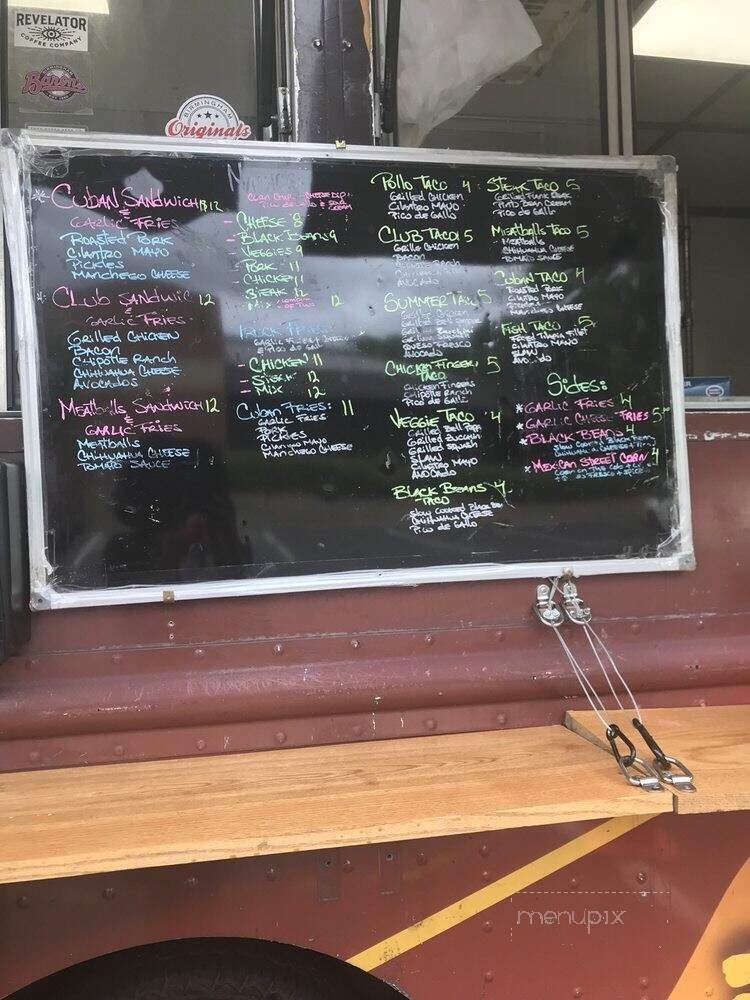 REVELATOR
COFFEE COMPANY
Barons
BIRMINGHAM
Originals
CUBAN SANDWICH 12
&
GARLIC FRIES
ROASTED PORK
CILANTRO MAYO
PICKLES
MANCHEGO CHEESE
CLUB SANDWIC 12
GARLIC FRIES
GRILLED CHICKEN
BACON
CHIPOTLE RANCH
CHIHUAHUA CHEESE
AVOCADOS
MEATBALLS SANDWICH 12
&
GARLIC FRIES
MEATBALLS
CHIHUAHUA CHEESE
TOMATO SAUCE
CHEESE DIP
PICO DE GALLO & SOUR
CREAM
- CHEESE 8
- BLACK BEANS 9
- VEGGIES 9
- PORK 11
- CHICKEN 11
- STEAK 12
- MIX 12
TRUCK FRIES
- CHICKEN 11
- STEAK 12
- MIX 12
CUBAN FRIES: 11
GARLIC FRIES
PORK
PICKLES
CILANTRO MAYO
MANCHEGO CHEESE
POLLO TACO 4
GRILLED CHICKEN
CILANTRO MAYO
PICO DE GALLO
CLUB TACO 5
GRILLE CHICKEN
BACON
AVOCADO
SUMMER TACO 5
GRILLED CHICKEN
QUESO FRESCO
AVOCADO
CHICKEN FINGER 5
TACO
CHICKEN FINGERS
CHIPOTLE RANCH
PICO DE GALLO
VEGGIE TACO 4
GRILLED BELL PEPP
GRILLED ZUCCHIN
GRILLED SQUASH
SLAW
CILANTRO MAYO
AVOCADO
BLACK BEANS 4
TACO
SLOW COOKED BLACK BEA
CHIHUAHUA CHEESE
PICO DE GALLO
STEAK TACO 5
GRILLED FLANK STEAK
PINTO BEAN CREAM
PICO DE GALLO
MEATBALLS TACO 5
MEATBALLS
CHIHUAHUA CHEESE
TOMATO SAUCE
CUBAN TACO 4
ROASTED PORK
CILANTRO MAYO
PICKLES
MANCHEGO CHEESE
FISH TACO 5
FRIED TILAPIA FILET
CILANTRO MAYO
SLAW
AVOCADO
SIDES:
* GARLIC FRIES 4
* GARLIC CHEESE FRIES 5
* BLACK BEANS 4
* MEXICAN STREET CORN 4
CORN ON THE COB
menupix